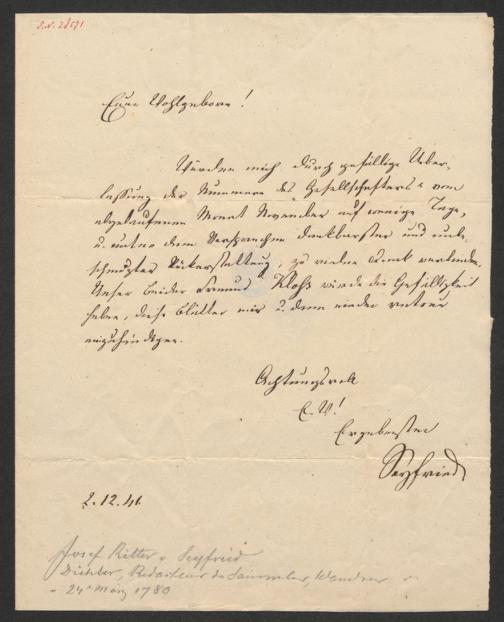 I.N. 28571
Euer Wohlgeboren!
Würden mich durch gefällige Ueber-
lassung der Nummern des „Gesellschafters“ vom
abgelaufenen Monat November auf wenige Tage,
u. unter dem Versprechen dankbarster und unbe-
schmutzter Rückerstattung, zu vielem Dank verbinden.
Unser beider Freund Kloß würde die Gefälligkeit
haben, diese Blätter mir u. dann wieder retour
einzuhändigen.
Achtungsvoll
E. W!
Ergebenster
Seyfried
2.12.41.
Josef Ritter v Seyfried
Dichter, Redacteur des Sammler, Wandrer
24 März 1780